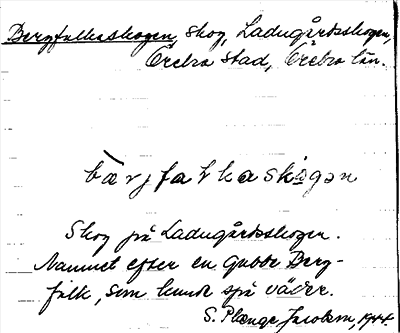 Bergfalkaskogen, skog, Ladugårdsskogen,
Örebro stad, Örebro län.
bær̀jfalkaskógən
Skog på Ladugårdsskogen.
Namnet efter en gubbe Berg-
falk, som kunde spå väder.
S. Plenge Jacobson, 1944.